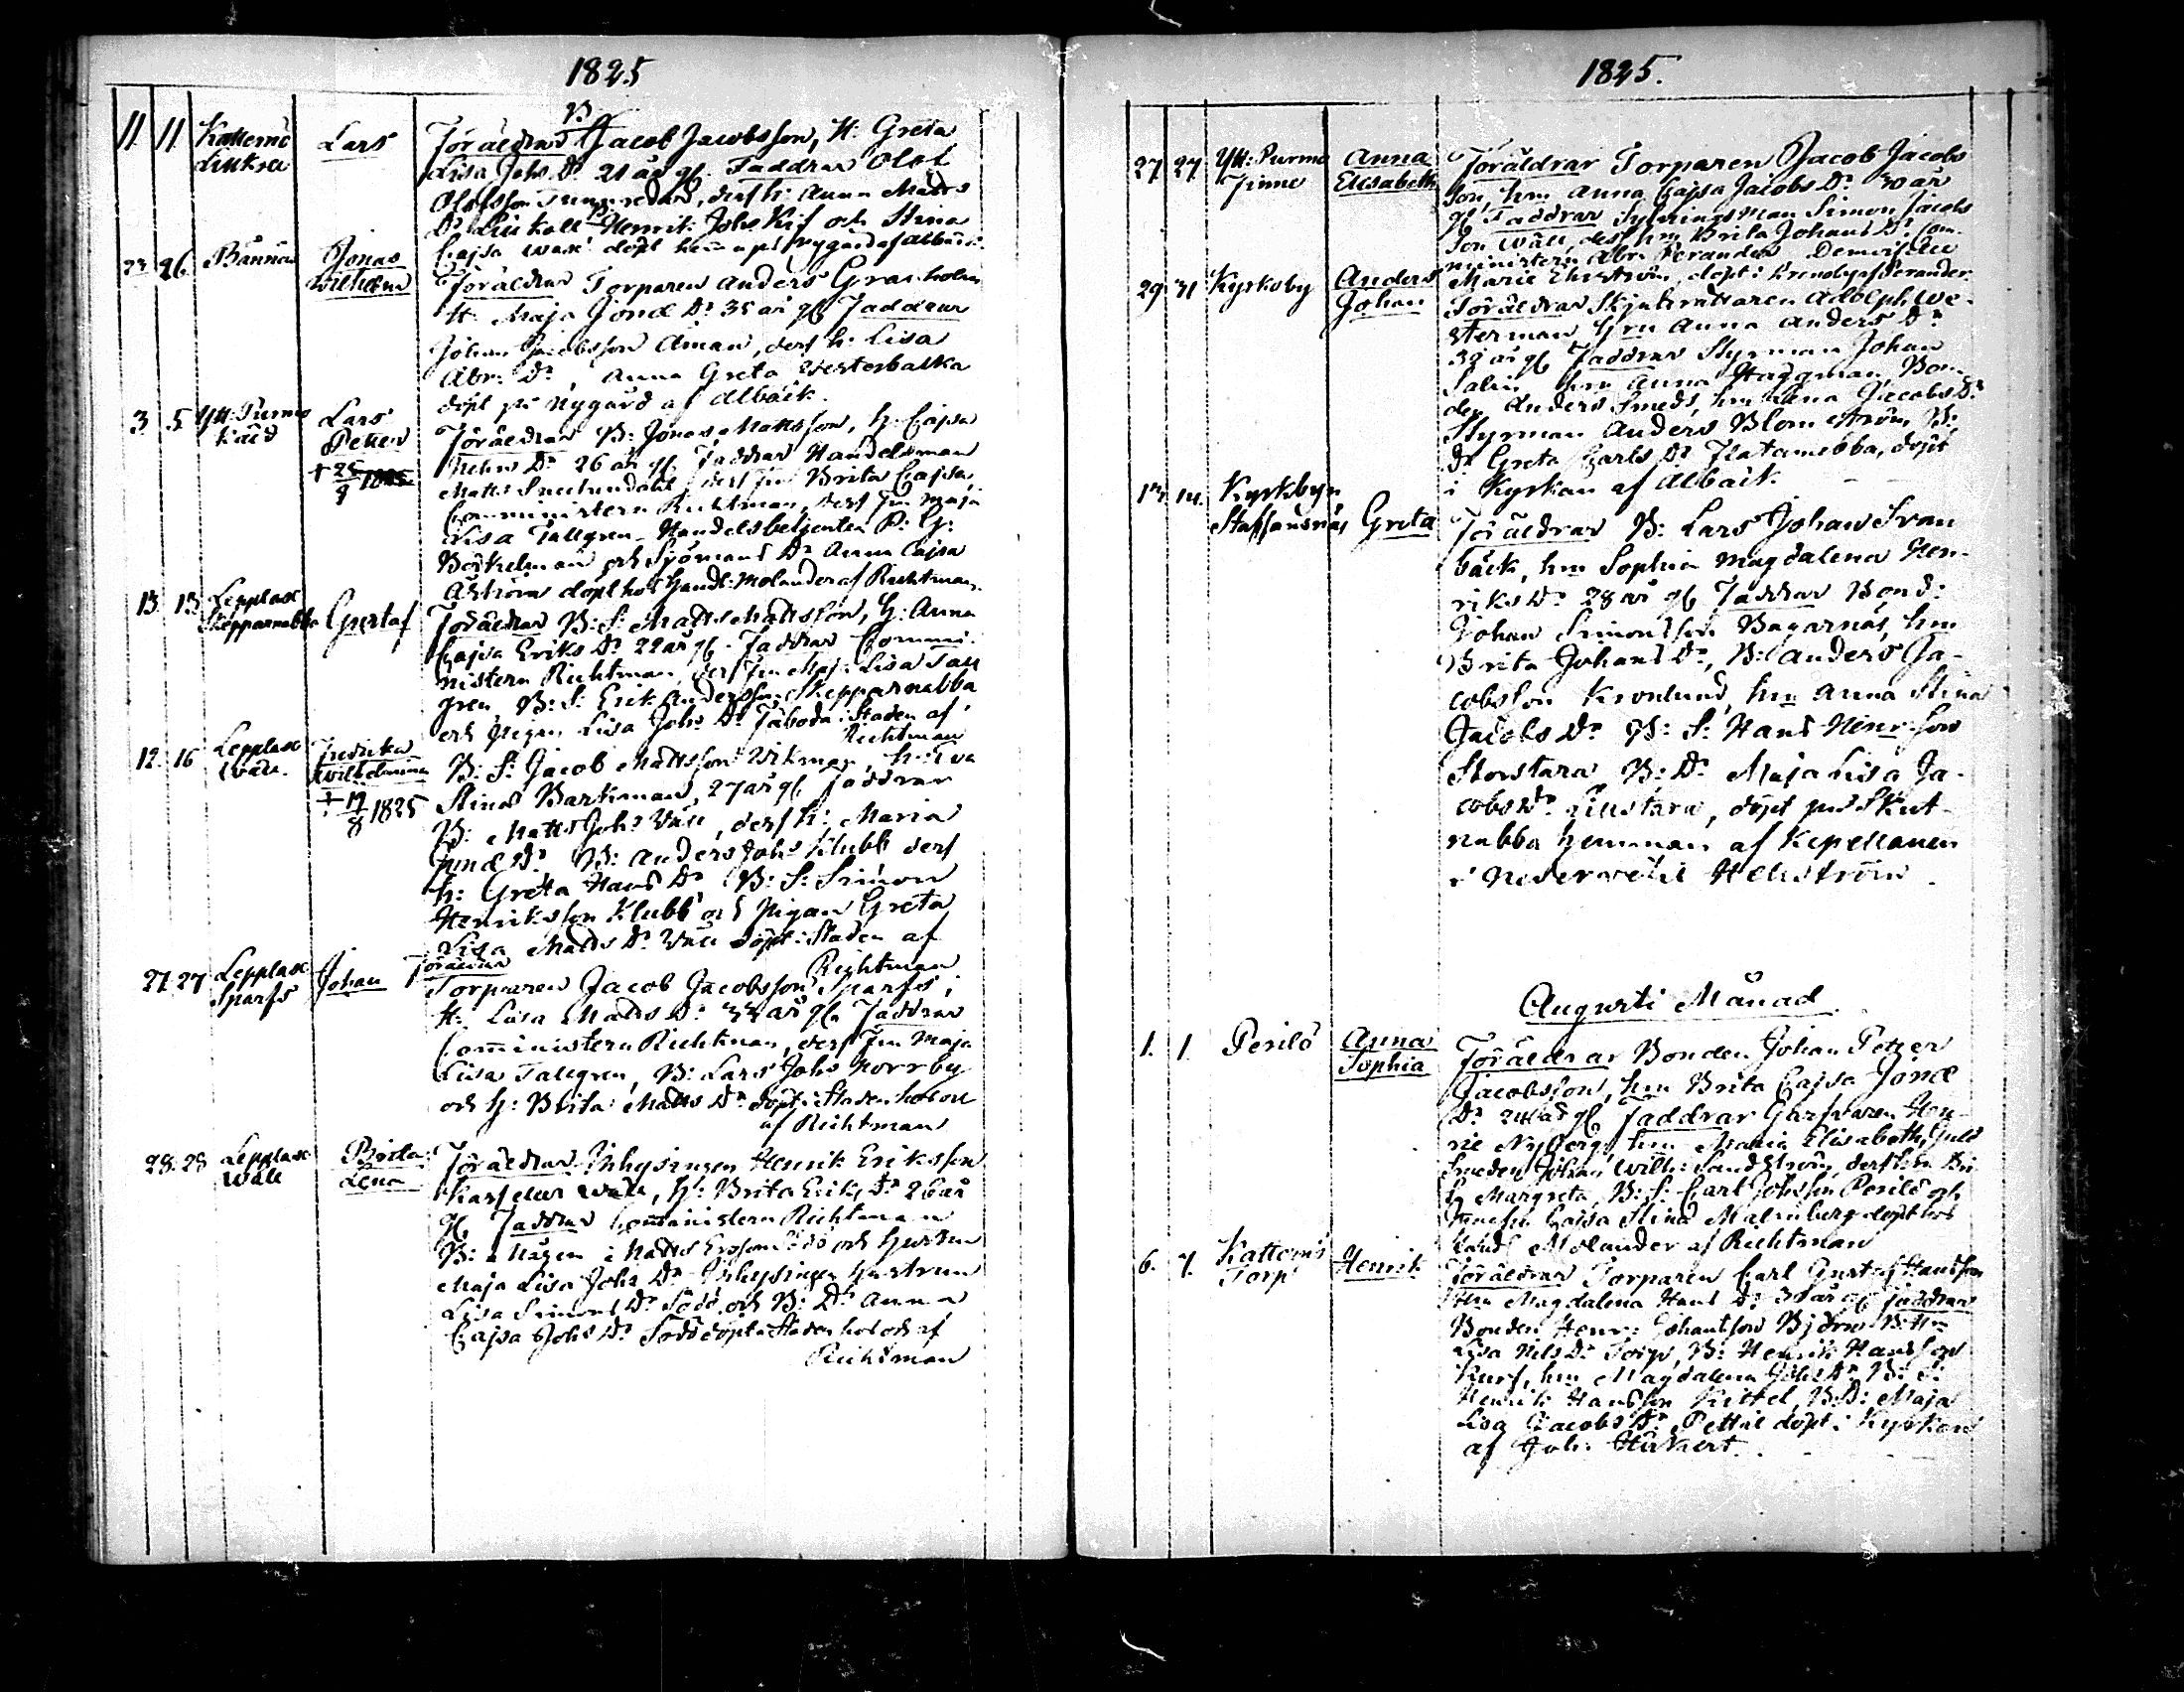 1825
11. 11. Lars Föräldrar B Jacob Jacobsson, H: Greta
Lisa Johs Dr 21 år gl. Faddrar Olof
Olofsson dess h: Anna Matts
Dr Henrik Johs och Stina
Cajsa döpt på Nygård af Albäck.
23. 26. Jonas Wilhelm Föräldrar Torparen Anders Granholm
H: Maja Jonæ Dr 35 år gl Faddrar
Johan Jacobsson Åman, dess h: Lisa
Abr: Dr, Anna Greta Westerbacka
döpt på Nygård af Albäck.
3. 5. Ytt: Purmo Lars Petter Föräldrar B: Jonas Mattsson, h: Cajsa
† 25/9 1825 Dr 26 år gl. Faddrar Handelsman
Matts dess fru Brita Cajsa,
Comministern Richtman, dess fru Maja
Lisa Tallgren, Handelsbetjenten P: G:
och Sjömans Dr Anna Cajsa
Åström döpt hos Handl: Molander af Richtman.
13. 13. Lepplax Skepparnabba Gustaf Föräldrar B: S: Matts Mattsson, H: Anna
Cajsa Eriks Dr 22 år gl. Faddrar Commi-
nistern Richtman, dess fru Maj: Lisa Tall
gren, B: S: Erik Andersson Skepparnabba
och pigan Lisa Johs Dr Fäboda i Staden af
Richtman
12. 16. Lepplax Wäll Fredrika Wilhelmina B: S: Jacob Mattsson Wikman, h: Eva
† 19/8 1825 Stina Barkman, 27 år gl. Faddrar
B: Matts Johs Wäll, dess h: Maria
Jonæ Dr B: Anders Johs Klubb dess
h: Greta Hans Dr B: S: Simon
Henriksson Klubb och pigan Greta
Lisa Matts Dr Wäll döpt i Staden af
Richtman
27. 27. Lepplax Sparfs Johan Föräldrar
Torparen Jacob Jacobsson Sparfs,
H: Lisa Matts Dr 33 år gl. Faddrar
Comministern Richtman, dess fru Maja
Lisa Tallgren, B: Lars Johs Norrby
och h: Brita Matts Dr döpt i Staden hos och
af Richtman
28. 28. Lepplax Wäll Brita Lena Föräldrar Inhysingen Henrik Eriksson
Wäll, h: Brita Erik Dr 26 år
gl. Faddrar Comministern Richtman
B: Mågen Matts Ersson och hustrun
Maja Lisa Johs Dr Inhysingen hustrun
Lisa Simons Dr Sådö och B: Dr Anna
Cajsa Johs Dr Sådö döpt i Staden hos och af
Richtman
1825.
27 27 Ytt: Purmo Finne Anna Elisabeth Föräldrar Torparen Jacob Jacobs
son, hm Anna Cajsa Jacobs Dr 30 år
gl Faddrar Fjerdingsman Simon Jacobs
son Wäll, dess hm Brita Johans Dr, Com-
ministern Abr: Perander Demoiselle
Marie Ehrström, döpt i Kronoby af Perander.
29 31 Kyrkoby Anders Johan Föräldrar Skjutsrättaren Adolph We-
sterman hru Anna Anders Dr
38 år gl. Faddrar Styrman Johan
Salin hm Anna Hagman, Bon-
den Anders Smeds, hm Lena Jacobs Dr
Styrman Anders Blomström B:
Dr Greta Carls Dr Flatanabba, döpt
i Kyrkan af Albäck.
13. 14. Kyrkbyn Staffansnäs Greta Föräldrar B: Lars Johan Svan
bäck, hm Sophia Magdalena Hen-
riks Dr 28 år gl Faddrar Bond:
Johan Simonsson Bagarnäs, hm
Brita Johans Dr, B: Anders Ja-
cobsson Kronlund, hm Anna Stina
Jacobs Dr B: S: Hans Henr:son
Storstara B: Dr Maja Lisa Ja-
cobs Dr Lillstara, döpt på Skut-
nabba hemman af Kapellanen
i Nedervetil Hellström.
Augusti Månad
1. 1. Pesilö Anna Sophia Föräldrar Bonden Johan Petter
Jacobsson, hm Brita Cajsa Jonæ
Dr 24 år gl Faddrar Garfvaren Hen-
ric Nyberg, hm Maria Elisabeth, Guld
Smeden Johan Wilh: Sandström, dess hm Bri
ta Margreta, B: S: Carl Johsson Pesilö och
Cajsa Stina Malmberg döpt hos
Handl Molander af Richtman
6. 7. Kattoms Torp Henrik Föräldrar Torparen Carl Gustaf Hansson
Hm Magdalena Hans Dr 30 år gl Faddrar
Bonden Henr: Johansson Björn B: Hm
Lisa Nils Dr Torp, B: Henrik Hansson
hm Magdalena Johs Dr B: S:
Henrik Hansson Kittel, B: D: Maja
Lisa Jacobs Dr döpt i Kyrkan
af Joh: Hirkert.